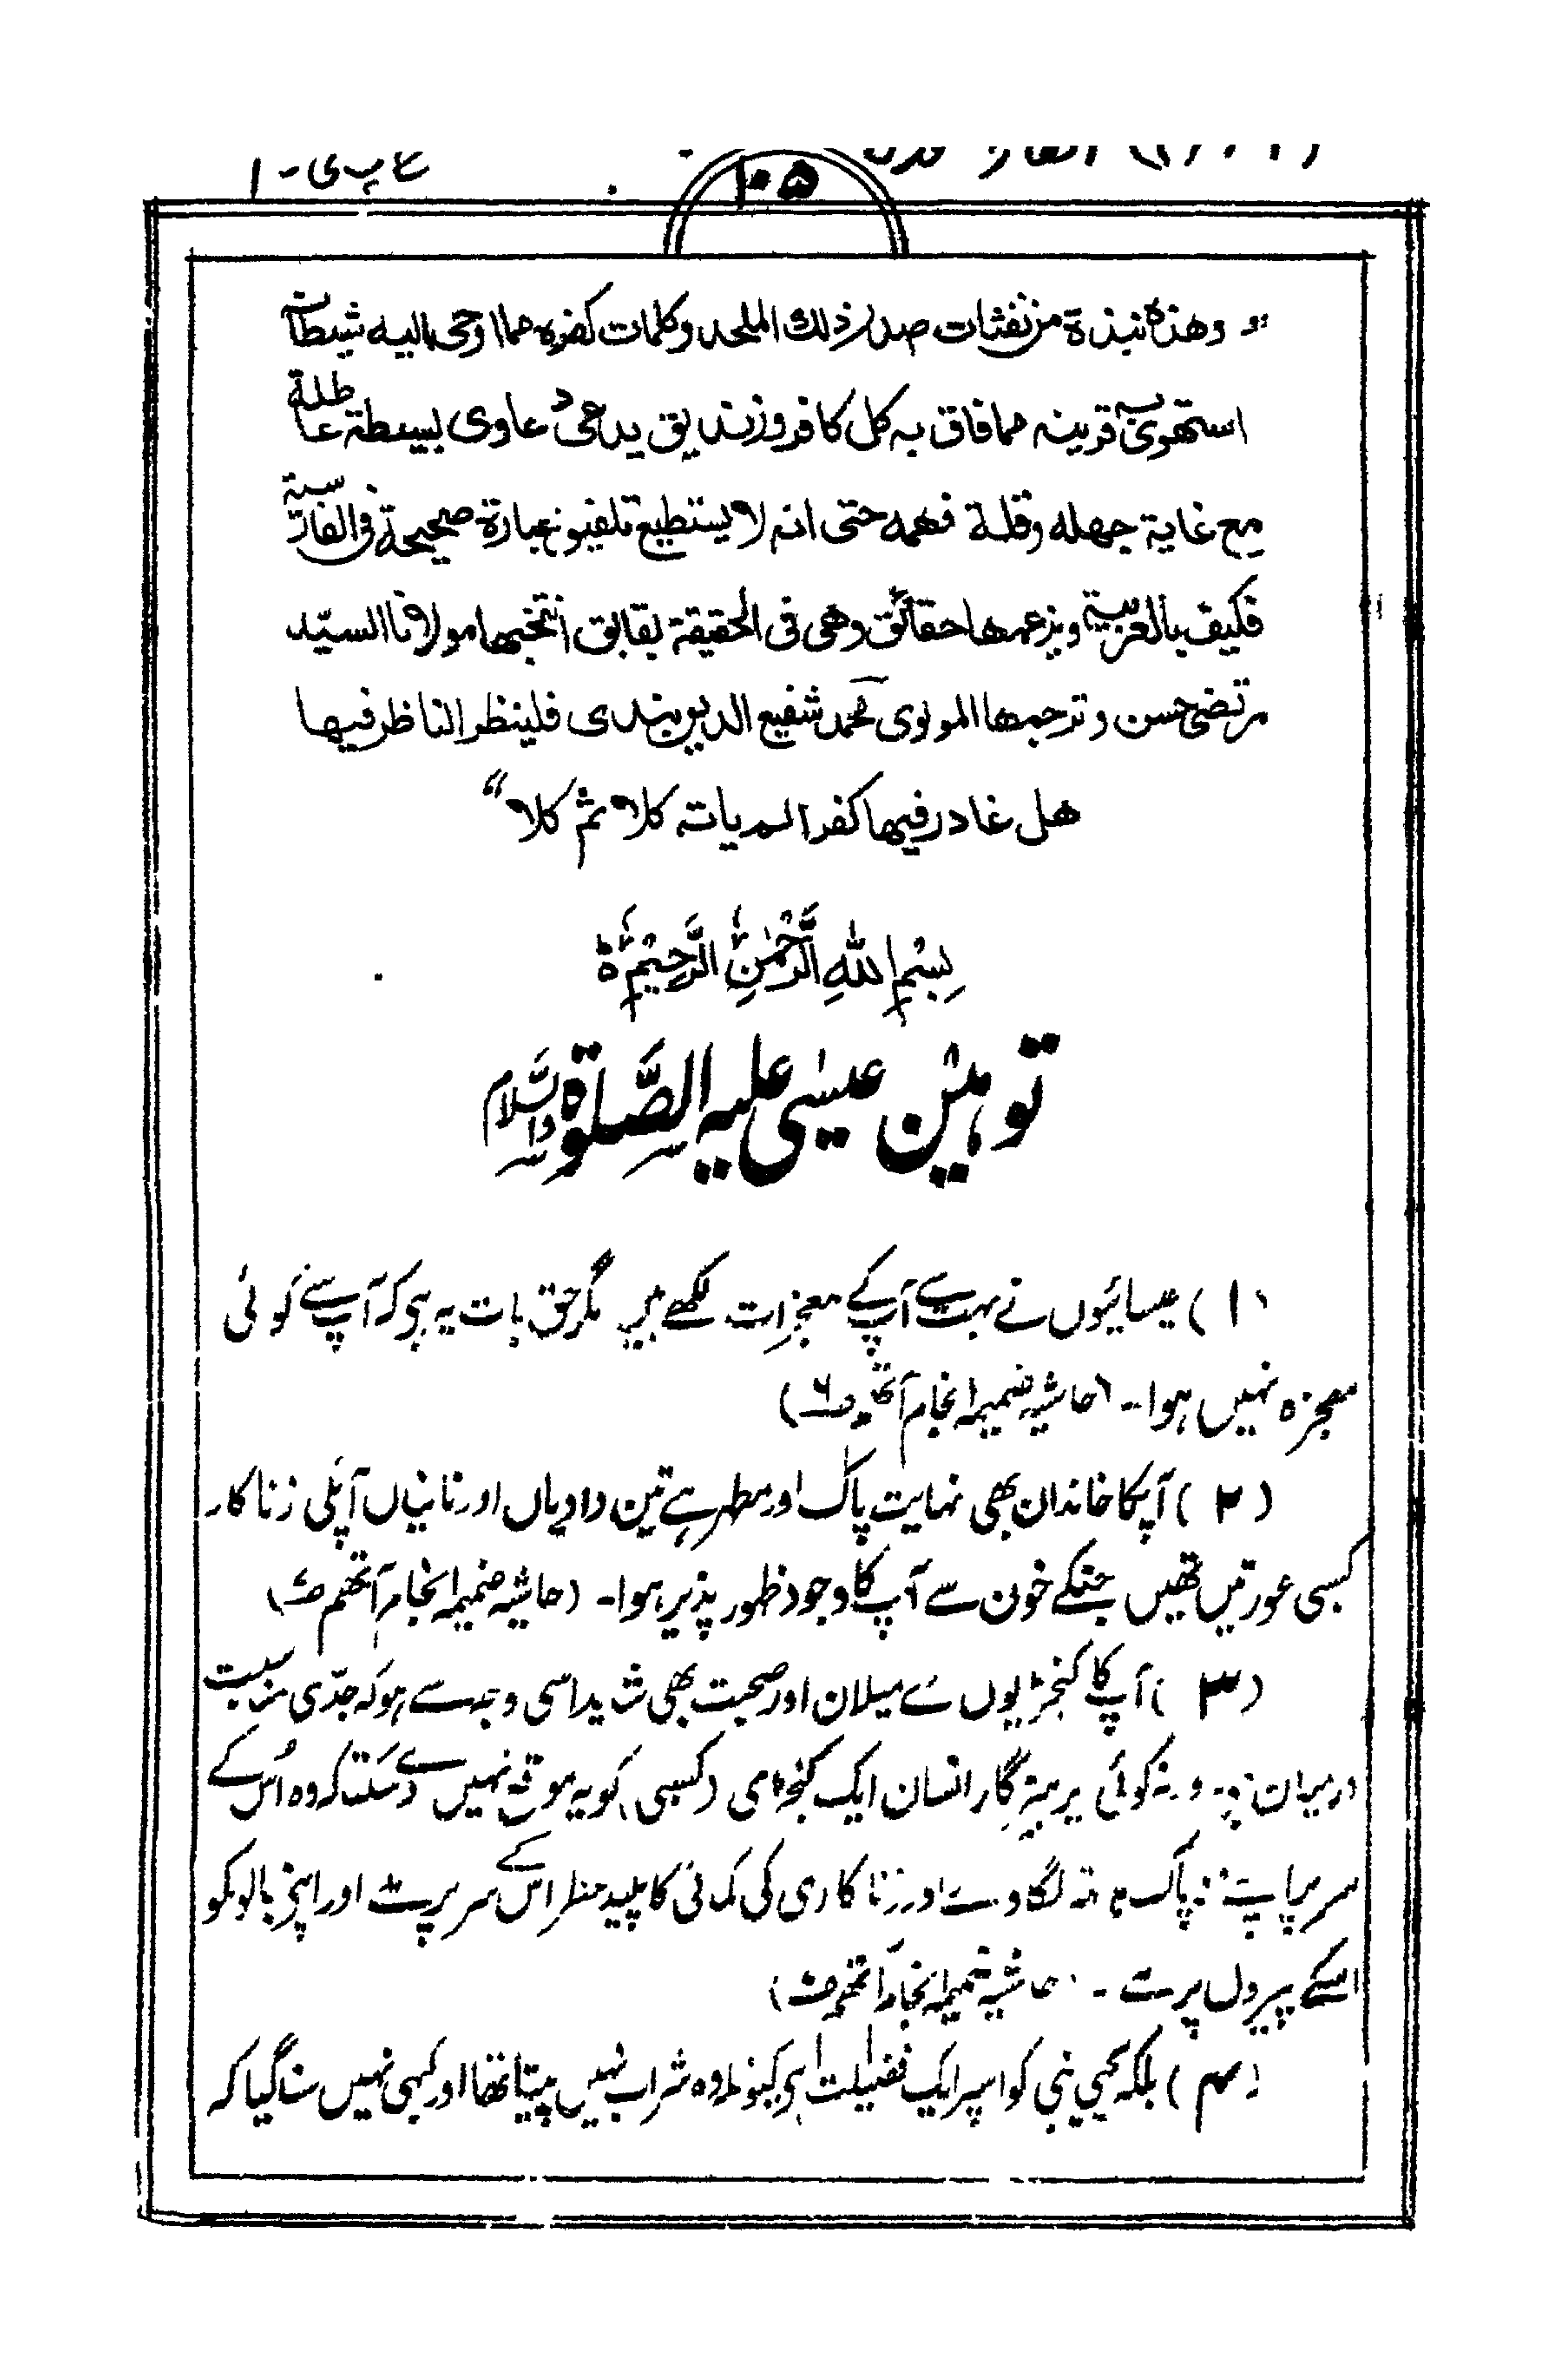 ۱۰۵
"وهذه نبذة من نفثات صدر ذلك الملحد وكلمات كفره مما اوحى اليه شيطان
استهوى به قرينه مما فاق به كل كافر وزنديق يدعى دعاوى بسيطة عاطلة
مع غاية جهله وقلة فهمه حتى انه لا يستطيع تلفيق عبارة صحيحة فى الفارسية
فكيف بالعربية ويزعمها حقائق وهى فى الحقيقة بقابق انتخبها مولانا السيّد
مرتضى حسن وترجمها المولوى محمد شفيع الديوبندى فلينظر الناظر فيها
هل غادر فيها كفرا لم ياته كلا ثم كلا"
بِسْمِ اللهِ الرَّحْمٰنِ الرَّحِيْمِ ؕ
توہین عیسٰی علیہ الصَّلوٰۃ والسَّلام
(۱) عیسائیوں نے بہت سے آپ کے معجزات لکھے ہیں مگر حق بات یہ ہی کہ آپ سے کوئی
معجزہ نہیں ہوا۔ (حاشیہ ضمیمہ انجام آتھم ص۶)
(۲) آپکا خاندان بھی نہایت پاک اور مطہر ہے تین دادیاں اور نانیاں آپکی زناکار
کسبی عورتیں تھیں جنکے خون سے آپ کا وجود ظہور پذیر ہوا۔ (حاشیہ ضمیمہ انجام آتھم ص۷)
(۳) آپ کا کنجریوں سے میلان اور صحبت بھی شاید اسی وجہ سے ہو کہ جدّی مناسبت
درمیان ہے ورنہ کوئی پرہیزگار انسان ایک کنجری (کسبی) کو یہ موقعہ نہیں دے سکتا کہ وہ اُس کے
سر پر اپنے ناپاک ہاتھ لگا دے اور زناکاری کی کمائی کا پلید عطر اس کے سر پر ملے اور اپنے بالونکو
اسکے پیروں پر ملے ۔ (حاشیہ ضمیمہ انجام آتھم ص۷)
(۴) بلکہ یحیی نبی کو اسپر ایک فضیلت ہی کیونکہ وہ شراب نہیں پیتا تھا اور کبھی نہیں سنا گیا کہ